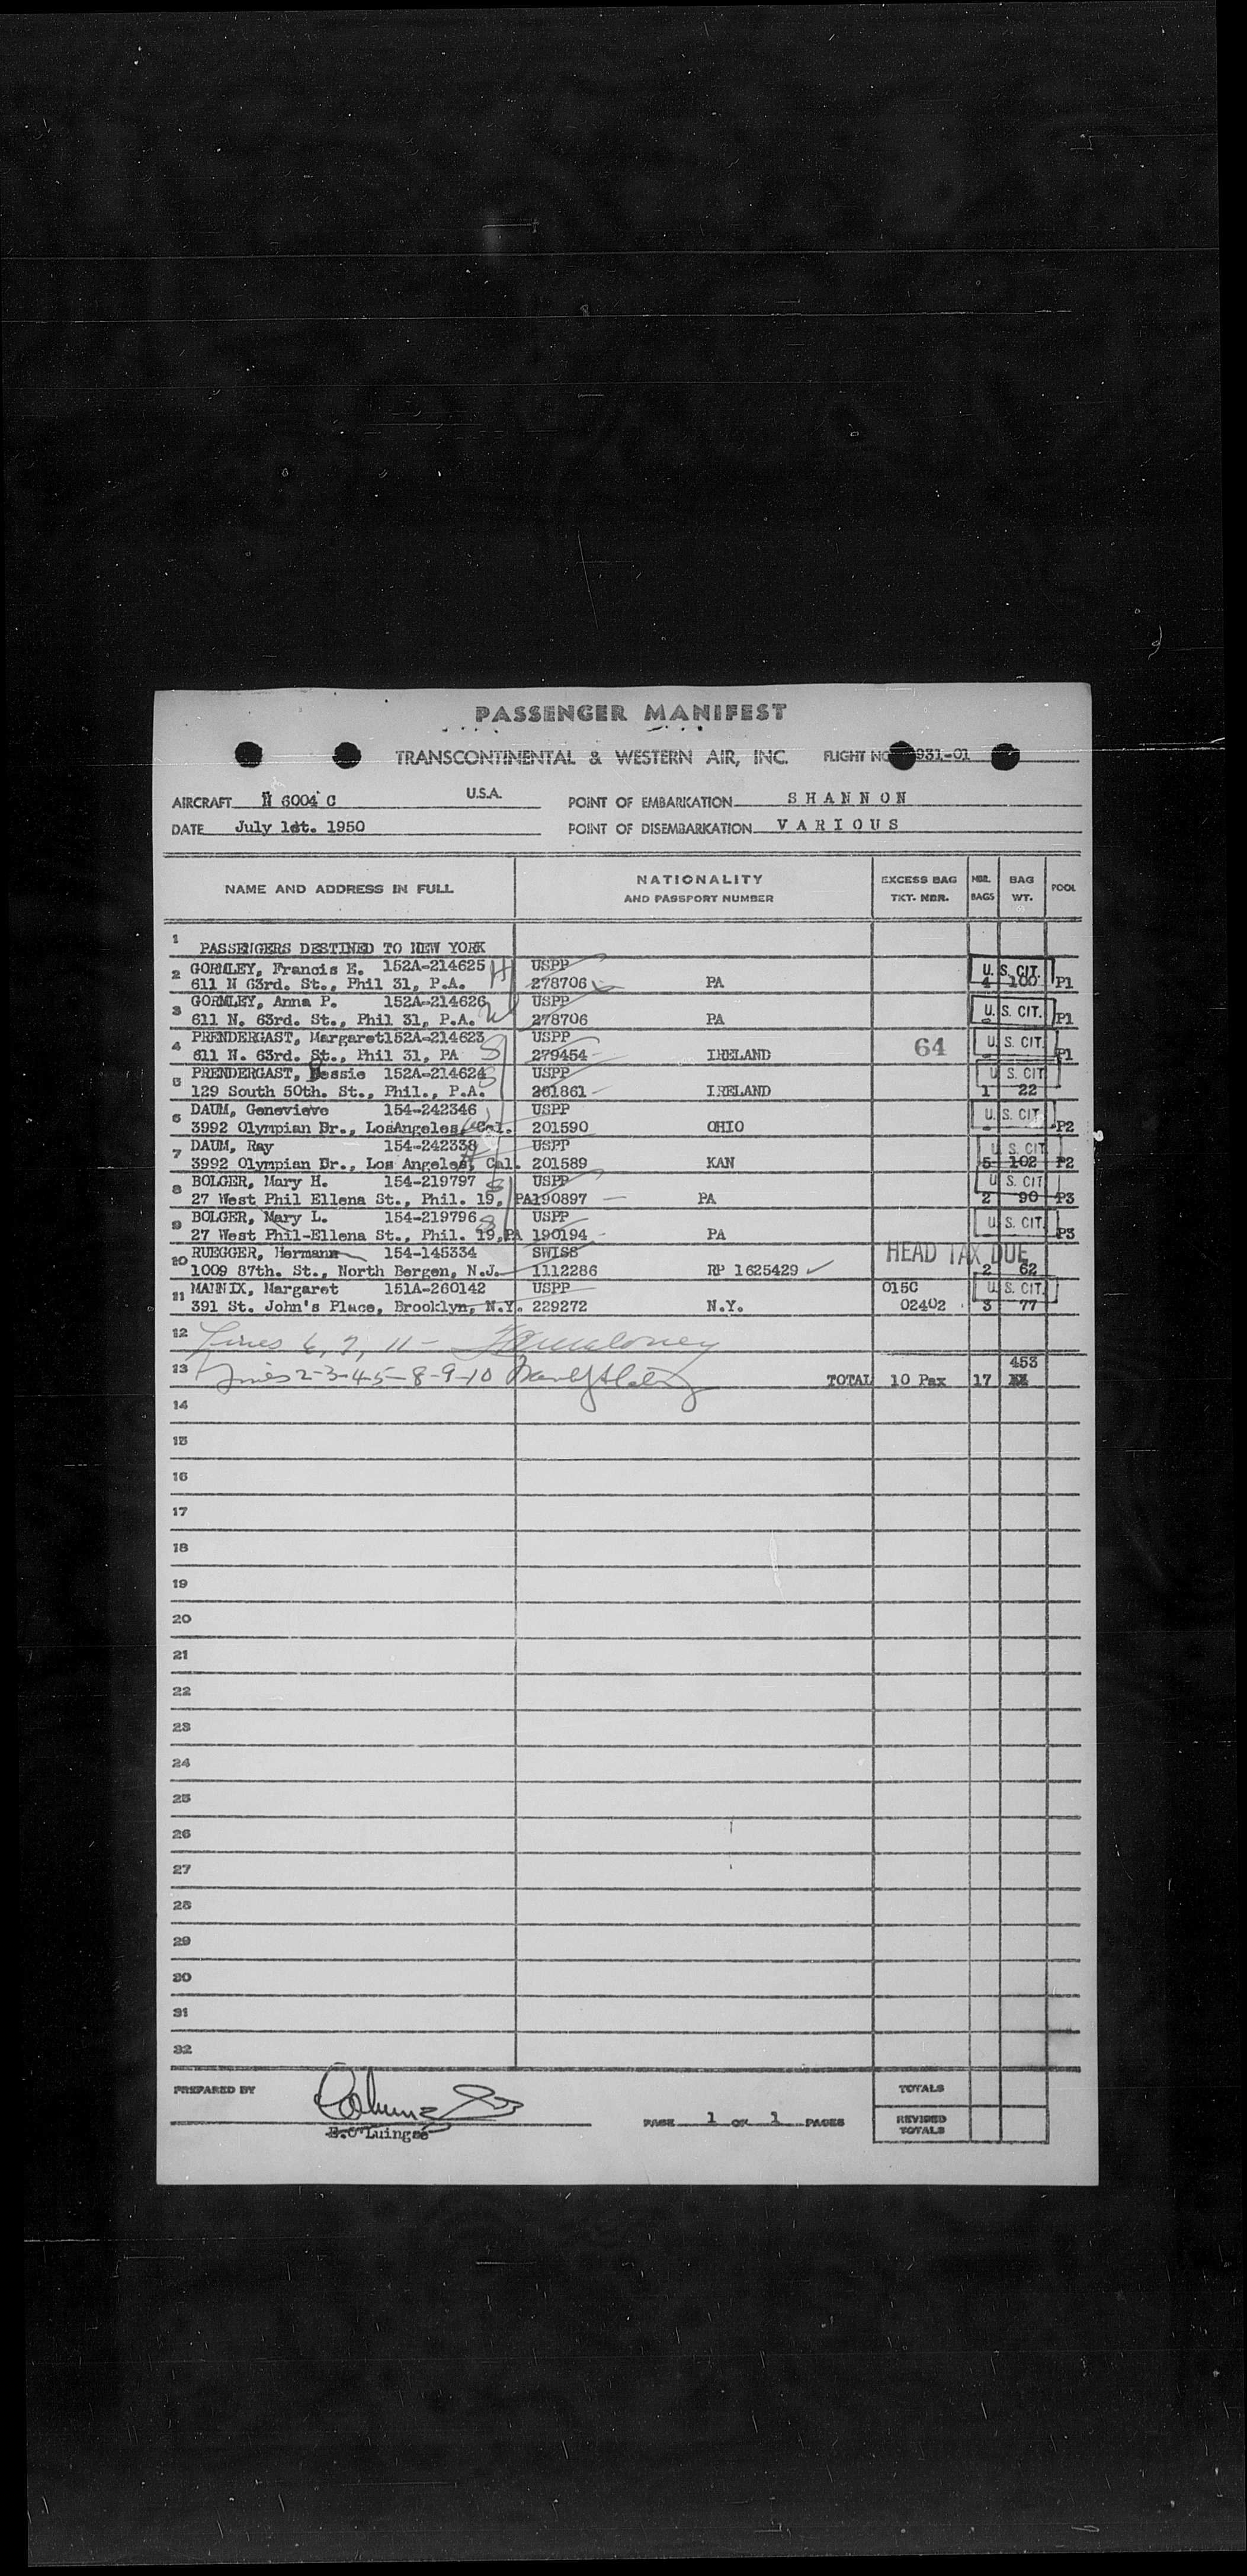 PASSENGER MANIFEST
TRANSCONTINENTAL & WESTERN AIR, INC. FLIGHT NO 931-01
AIRCRAFT N 6004 C U.S.A. POINT OF EMBARKATION SHANNON
DATE July 1st. 1950 POINT OF DISEMBARKATION VARIOUS
NAME AND ADDRESS IN FULL NATIONALITY AND PASSPORT NUMBER EXCESS BAG TKT. NBR. NBR. BAGS BAG WT. POOL
1 PASSENGERS DESTINED TO NEW YORK
2 GORMLEY, Francis E. 152A-214625 H USPP U.S. CIT.
611 N 63rd. St., Phil 31, P.A. 278706 PA 4 100 P1
3 GORMLEY, Anna P. 152A-214626 W USPP U.S. CIT.
611 N. 63rd. St., Phil 31, P.A. 278706 PA P1
4 PRENDERGAST, Margaret 152A-214623 S USPP U.S. CIT.
611 N. 63rd. St., Phil 31, PA 279454 IRELAND 64 P1
5 PRENDERGAST, Bessie 152A-214624 S USPP U.S. CIT.
129 South 50th. St., Phil., P.A. 261861 IRELAND 1 22
6 DAUM, Genevieve 154-242346 USPP U.S. CIT.
3992 Olympian Dr., LosAngeles, Cal. 201590 OHIO P2
7 DAUM, Ray 154-242338 USPP U.S. CIT.
3992 Olympian Dr., Los Angeles, Cal. 201589 KAN 5 102 P2
8 BOLGER, Mary H. 154-219797 S USPP U.S. CIT.
27 West Phil Ellena St., Phil. 19, PA 190897 PA 2 90 P3
9 BOLGER, Mary L. 154-219796 S USPP U.S. CIT.
27 West Phil-Ellena St., Phil. 19, PA 190194 PA P3
10 RUEGGER, Hermann 154-145334 SWISS HEAD TAX DUE
1009 87th. St., North Bergen, N.J. 1112286 RP 1625429 2 62
11 MANNIX, Margaret 151A-260142 USPP 015C U.S. CIT.
391 St. John's Place, Brooklyn, N.Y. 229272 N.Y. 02402 3 77
12 Lines 6, 7, 11 -
13 Lines 2-3-4-5-8-9-10 453
TOTAL 10 Pax 17
14
15
16
17
18
19
20
21
22
23
24
25
26
27
28
29
30
31
32
PREPARED BY TOTALS
PAGE 1 OF 1 PAGES REVISED TOTALS